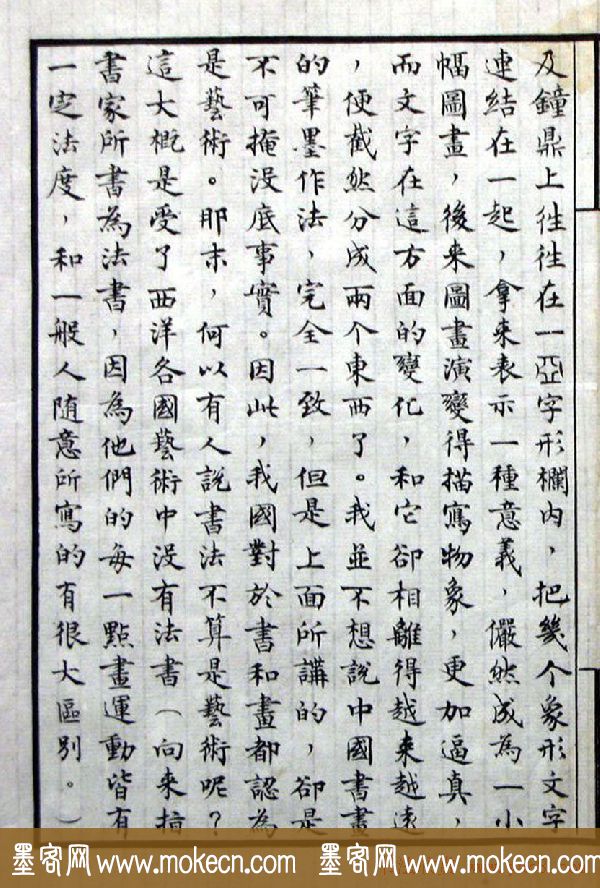 及鐘鼎上往往在一亞字形欄内，把幾个象形文字
連結在一起，拿来表示一種意義，儼然成為一小
幅圖畫，後来圖畫演變得描寫物象，更加逼真，
而文字在這方面的變化，和它卻相離得越来越遠
，便截然分成兩个東西了。我並不想說中國書畫
的筆墨作法，完全一致，但是上面所講的，卻是
不可掩没底事實。因此，我國對於書和畫都認為
是藝術。那末，何以有人說書法不算是藝術呢？
這大概是受了西洋各國藝術中没有法書（向来指
書家所書為法書，因為他們的每一點畫運動皆有
一定法度，和一般人随意所寫的有很大區别。）
墨客网 www.mokecn.com 墨客网 www.mokecn.com